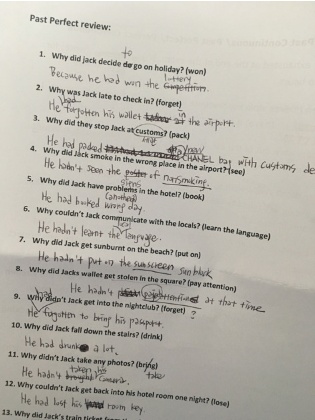 Past Perfect review:
to
1. Why did jack decide do go on holiday? (won)
lottery
Because he had won the competition.
2. Why was Jack late to check in? (forget)
had
He forgotten his wallet at in the airport.
3. Why did they stop Jack at customs? (pack)
He had packed CHANEL bag with customs, de
4. Why did Jack smoke in the wrong place in the airport? (see)
He hadn't seen the poster of nonsmoking.
5. Why did Jack have problems in the hotel? (book)
He had booked wrong day.
6. Why couldn't Jack communicate with the locals? (learn the language)
He hadn't learnt the language.
7. Why did Jack get sunburnt on the beach? (put on)
He hadn't put on the sunscreen sun block
8. Why did Jacks wallet get stolen in the square? (pay attention)
He hadn't at that time
9. Why didn't Jack get into the nightclub? (forget)
had
He forgotten to bring his passport.
10. Why did Jack fall down the stairs? (drink)
He had drunk a lot.
11. Why didn't Jack take any photos? (bring)
taken his
take
He hadn't brought camera.
12. Why couldn't Jack get back into his hotel room one night? (lose)
He had lost his room key
13. Why did Jack's train ticket